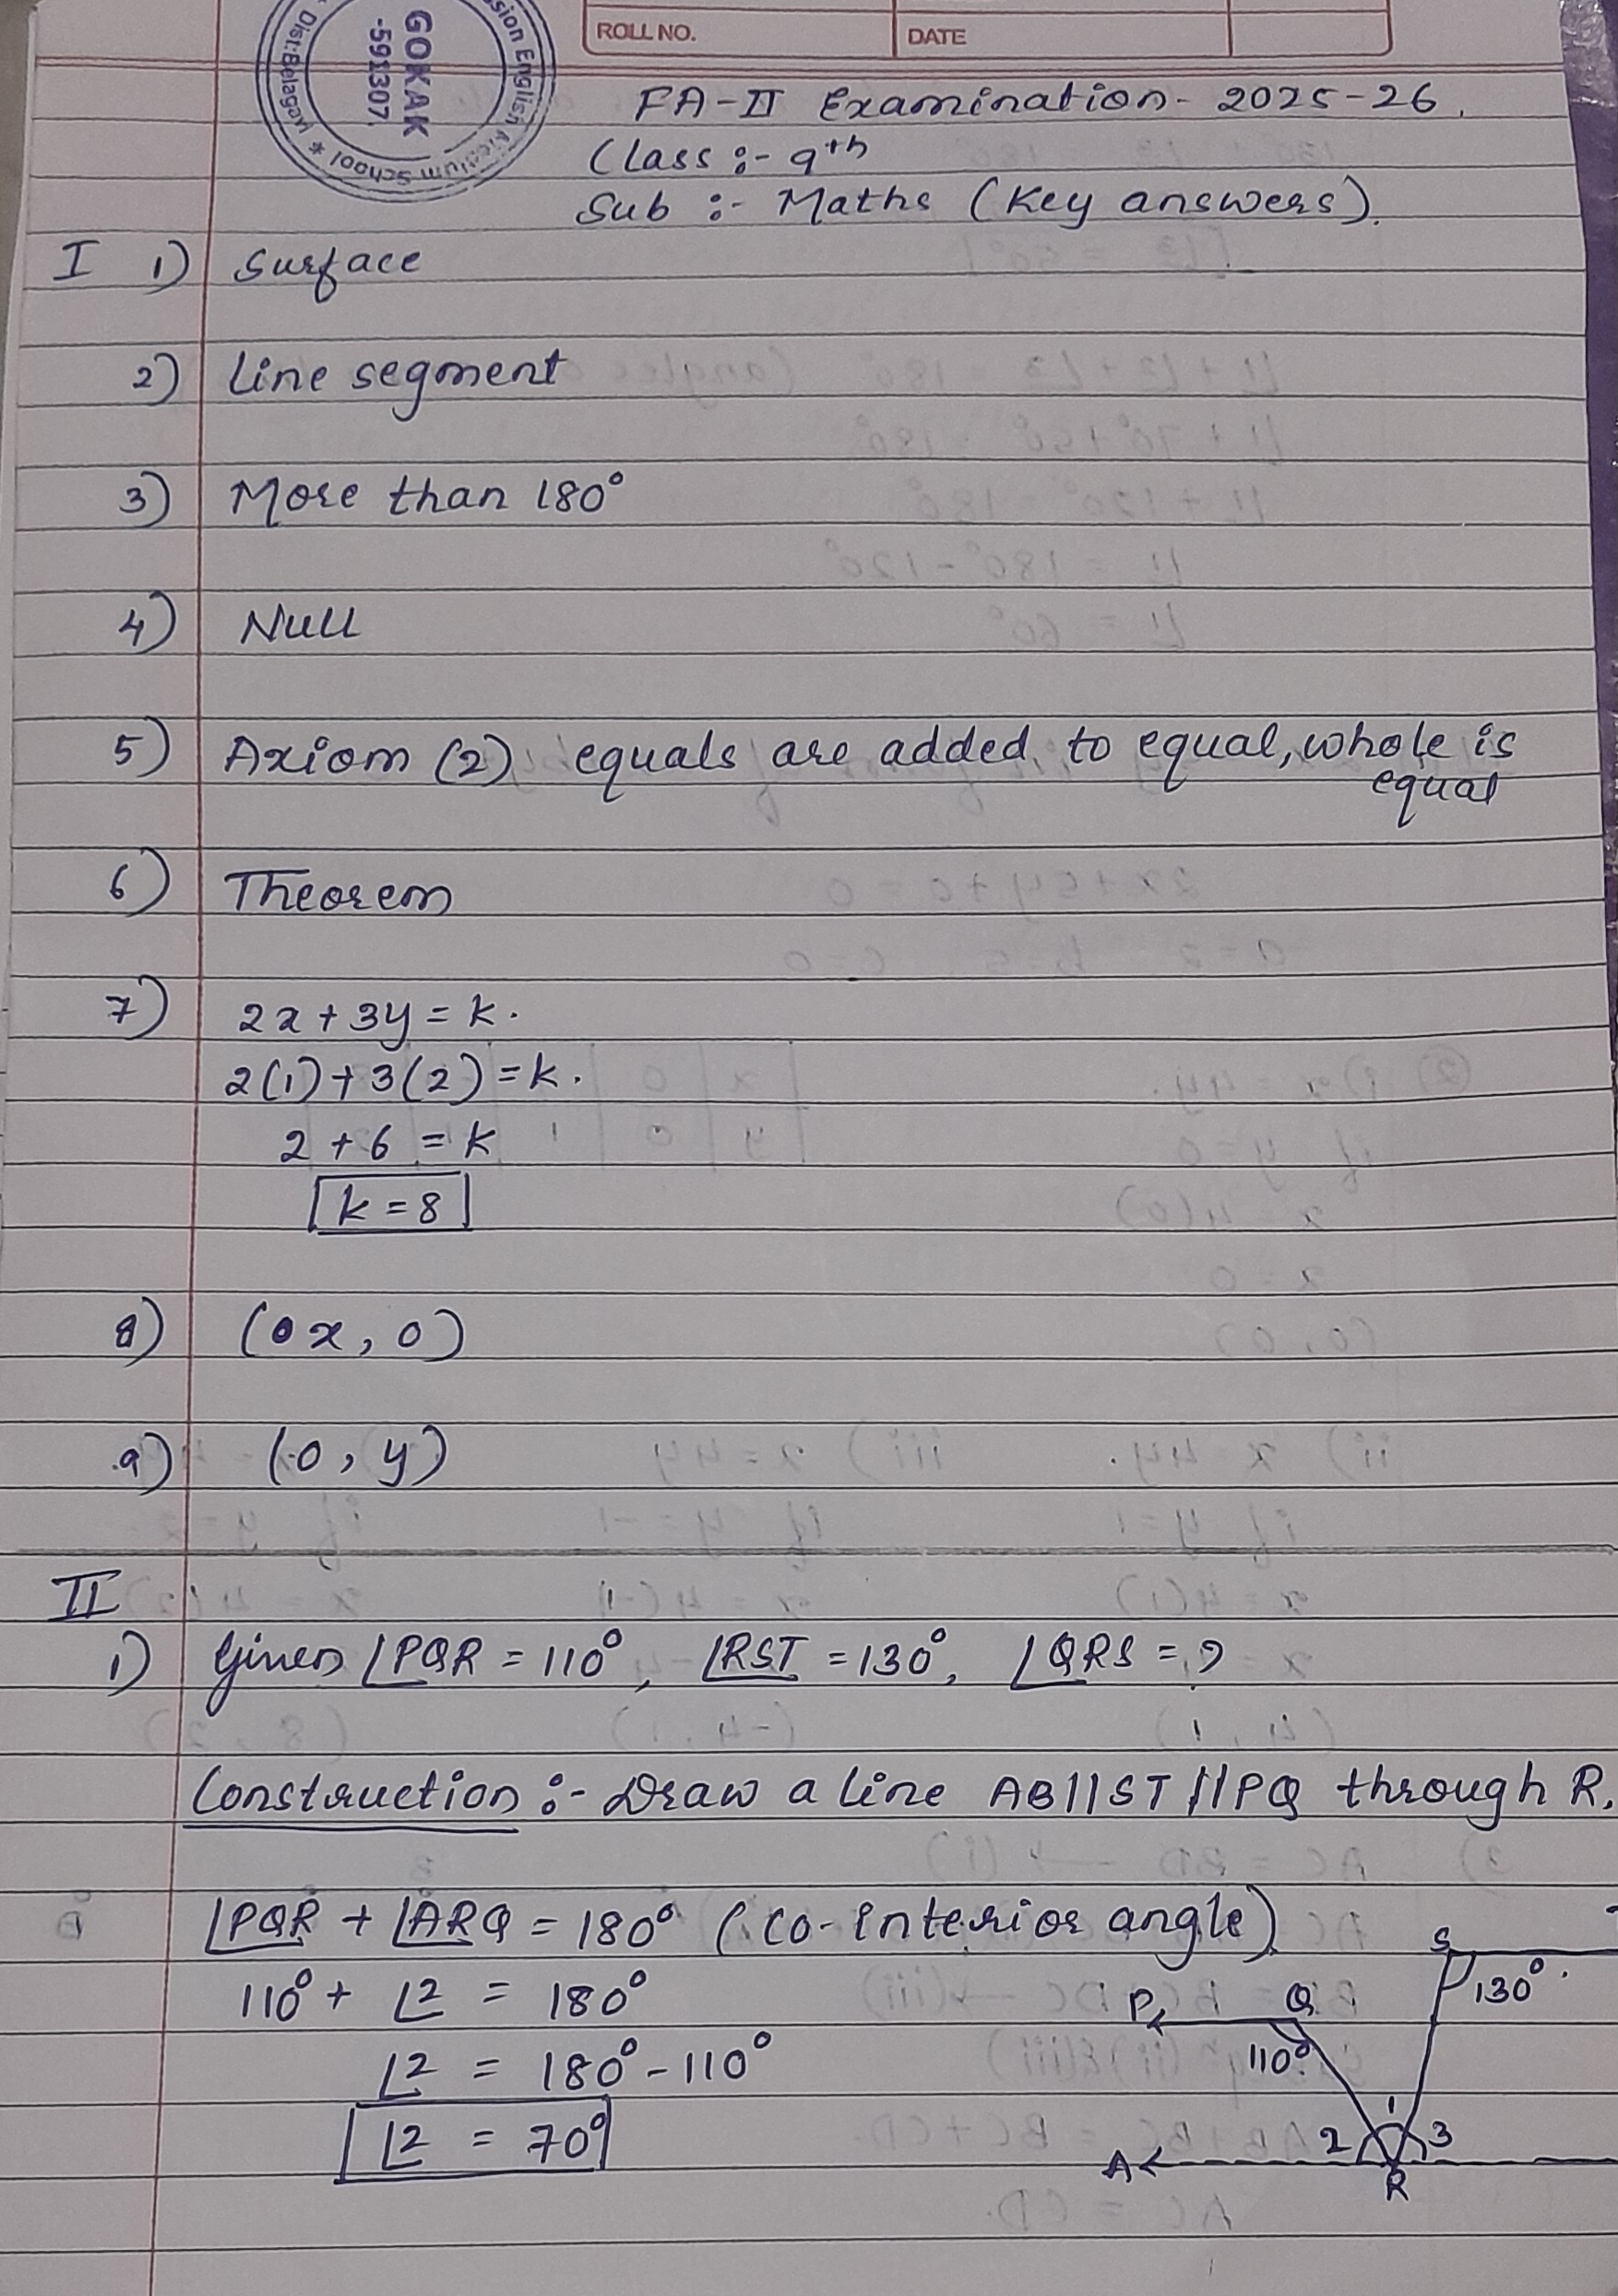 ssion English Medium School * Dist:Belagavi
GOKAK
-591307
ROLL NO.
DATE
FA-II Examination- 2025-26.
Class :- 9th
Sub :- Maths (Key answers).
I 1) Surface
2) Line segment
3) More than 180°
4) Null
5) Axiom (2) equals are added to equal, whole is
equal
6) Theorem
7) 2x+3y=k.
2(1)+3(2)=k.
2+6=k
k=8
8) (x, 0)
9) (0, y)
II
1) Given ∠PQR = 110°, ∠RST = 130°, ∠QRS = ?
Construction :- Draw a line AB||ST||PQ through R.
∠PQR + ∠ARQ = 180° (Co-interior angle)
110° + ∠2 = 180°
∠2 = 180° - 110°
∠2 = 70°
S
130°
P Q
110°
1
2 3
A
R